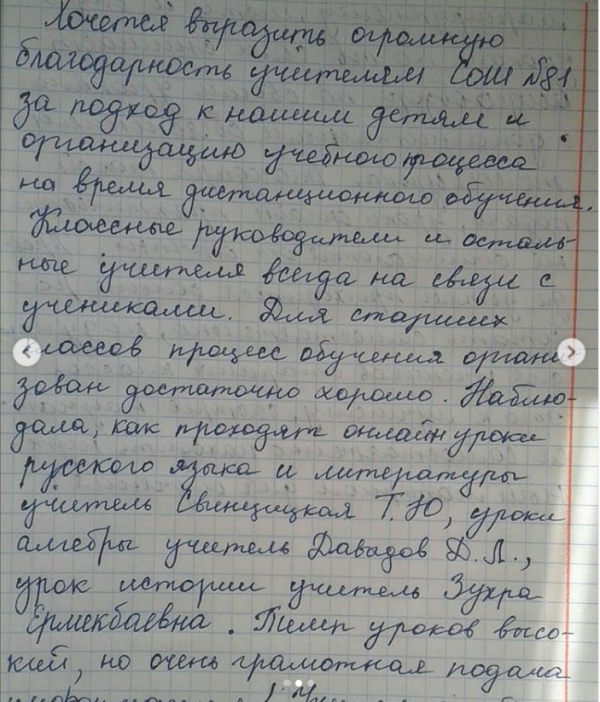 Хочется выразить огромную
благодарность учителям СОШ №81
за подход к нашим детям и
организацию учебного процесса
на время дистанционного обучения.
Классные руководители и осталь-
ные учителя всегда на связи с
учениками. Для старших
классов процесс обучения органи
зован достаточно хорошо. Наблю-
дала, как проходят онлайн уроки
русского языка и литературы
учитель Свинцицкая Т.Ю, уроки
алгебры учитель Давыдов Д.Л.,
урок истории учитель Зухра
Ермекбаевна. Темп уроков высо-
кий, но очень грамотная подача